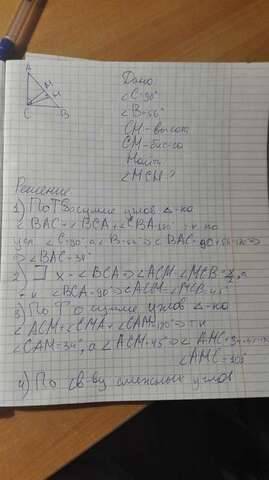 A
M
H
C
B
Дано:
∠C=90°
∠B=56°
CH-высота
CM-бис-са
Найти
∠MCH?
Решение
1) По Т о сумме углов Δ-ка
∠BAC+∠BCA+∠CBA=180° т.к по
усл. ∠C=90°, а ∠B=56°⇒ ∠BAC+90+56=180⇒
⇒ ∠BAC=34°
2) x=∠BCA⇒∠ACM=∠MCB=x/2, а
т.к ∠BCA=90°⇒∠ACM=∠MCB=45°
3) По Т о сумме углов Δ-ка
∠ACM+∠CMA+∠CAM=180°⇒ т.к
∠CAM=34°, а ∠ACM=45°⇒
4) По св-ву смежных углов